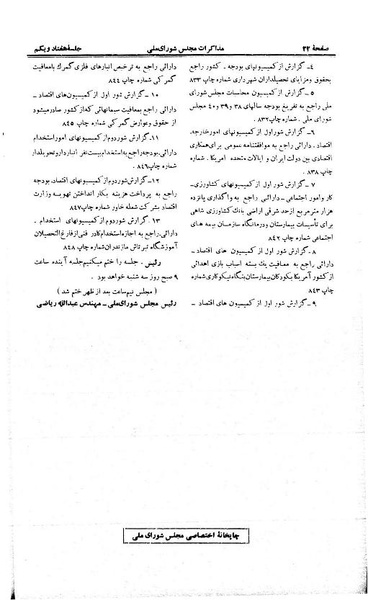 صفحهٔ ۲۲
مذاکرات مجلس شورای‌ملی
جلسه هفتاد و یکم
۴ـ گزارش از کمیسیونهای بودجه . کشور راجع
بحقوق ومزایای تحصیلداران شهرداری شماره چاپ ۸۳۳
۵ ـ گزارش از کمیسیون محاسبات مجلس شورای
ملی به تفریغ بودجه سالهای ۳۸ و ۳۹ و ۴۰ مجلس
شورای ملی . شماره چاپ ۸۳۲
۶ـ گزارش شور اول از کمیسیونهای امور خارجه.
اقتصاد . دارائی راجع به موافقتنامه عمومی برای همکاری
اقتصادی بین دولت ایران و ایالات متحده امریکا . شماره
چاپ ۸۳۸
۷ ـ گزارش شور اول از کمیسیونهای کشاورزی ـ
کار و امور اجتماعی ـ دارائی راجع به واگذاری پانزده
هزار مترمربع از صد شرقی اراضی بانک کشاورزی شاهی
برای تأسیسات بیمارستان و درمانگاه سازمان بیمه های
اجتماعی شماره چاپ ۸۴۲
۸ ـ گزارش شور اول از کمیسیون های اقتصاد ـ
دارائی راجع به معافیت یک بسته اسباب بازی اهدائی
از کشور آمریکا بکودکان بیمارستان بنگاه نیکوکاری شماره
چاپ ۸۴۳
۹ ـ گزارش شور اول از کمیسیون های اقتصاد ـ
دارائی راجع به ترخیص انبارهای فلزی گمرک با معافیت
گمرکی شماره چاپ ۸۴۴
۱۰ ـ گزارش شور اول از کمیسیونهای اقتصاد ـ
دارائی راجع بمعافیت سیمانهائی که از کشور صادر میشود
از حقوق و عوارض گمرکی شماره چاپ ۸۴۵
۱۱ـ گزارش شور دوم از کمیسیونهای امور استخدام
دارائی. بودجه راجع به استخدام بیست نفر انباردار و تحویلدار
شماره چاپ ۸۴۶
۱۲ـ گزارش شور دوم از کمیسیونهای اقتصاد. بودجه
راجع به پرداخت هزینه بکار انداختن تهویه وزارت
اقتصاد بشرکت شعله خاور شماره چاپ ۸۴۷
۱۳ گزارش شور دوم از کمیسیونهای استخدام ـ
دارائی راجع به اجازه استخدام کادر فنی از فارغ التحصیلان
آموزشگاه تیرتاش مازندران شماره چاپ ۸۴۸
رئیس ـ جلسه را ختم میکنیم جلسه آینده ساعت
۹ صبح روز سه شنبه خواهد بود .
( مجلس نیم ساعت بعد از ظهر ختم شد )
رئیس مجلس شورای‌ملی ـ مهندس عبدالله ریاضی
چاپخانهٔ اختصاصی مجلس شورای ملی